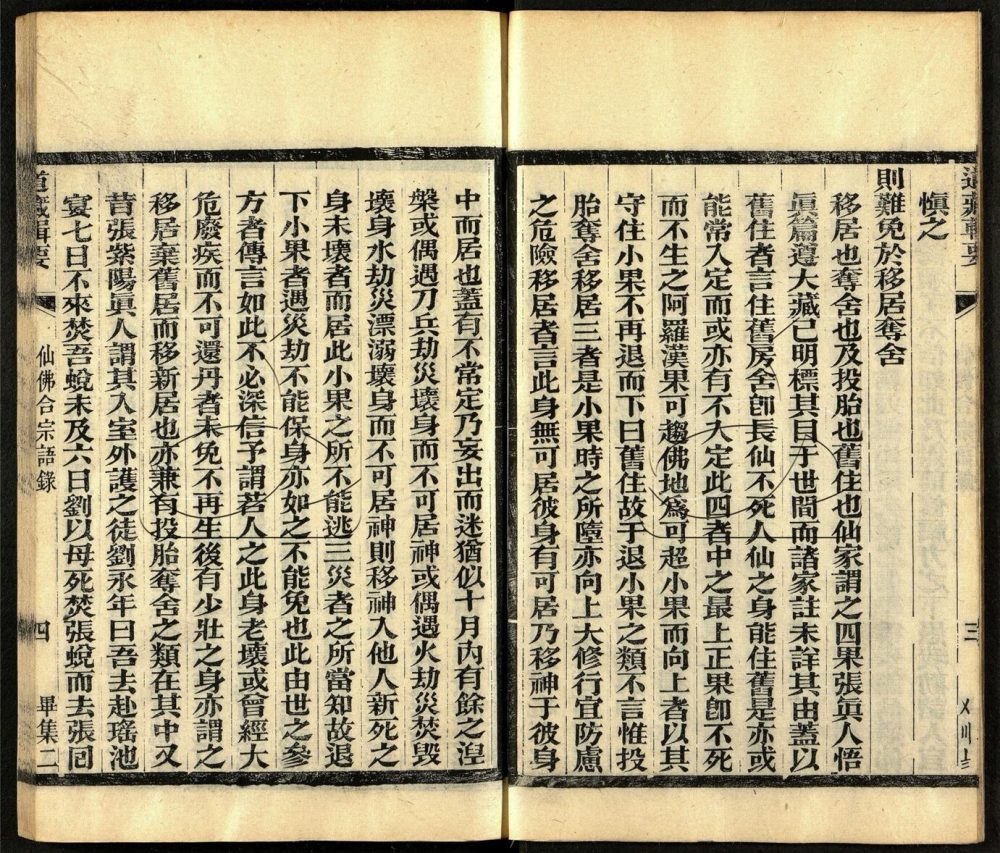 道藏輯要
三
慎之
則難免於移居奪舍
移居也奪舍也及投胎也舊住也仙家謂之四果張眞人悟
眞篇遵大藏已明標其目于世間而諸家註未詳其由蓋以
舊住者言住舊房舍卽長仙不死人仙之身能住舊是亦或
能常入定而或亦有不入定此四者中之最上正果卽不死
而不生之阿羅漢果可趨佛地爲可超小果而向上者以其
守住小果不再退而下曰舊住故于退小果之類不言惟投
胎奪舍移居三者是小果時之所墮亦向上大修行宜防慮
之危險移居者言此身無可居彼身有可居乃移神于彼身
中而居也蓋有不常定乃妄出而迷猶似十月內有餘之湼
槃或偶遇刀兵劫災壞身而不可居神或偶遇火劫災焚毀
壞身水劫災漂溺壞身而不可居神則移神入他人新死之
身未壞者而居此小果之所不能逃三災者之所當知故退
下小果者遇災劫不能保身亦如之不能免也此由世之參
方者傳言如此不必深信予謂若人之此身老壞或曾經大
危廢疾而不可還丹者未免不再生後有少壯之身亦謂之
移居棄舊居而移新居也亦兼有投胎奪舍之類在其中又
昔張紫陽眞人謂其入室外護之徒劉永年曰吾去赴瑤池
宴七日不來焚吾蛻未及六日劉以母死焚張蛻而去張囘
道藏輯要
仙佛合宗語錄
四
畢集二